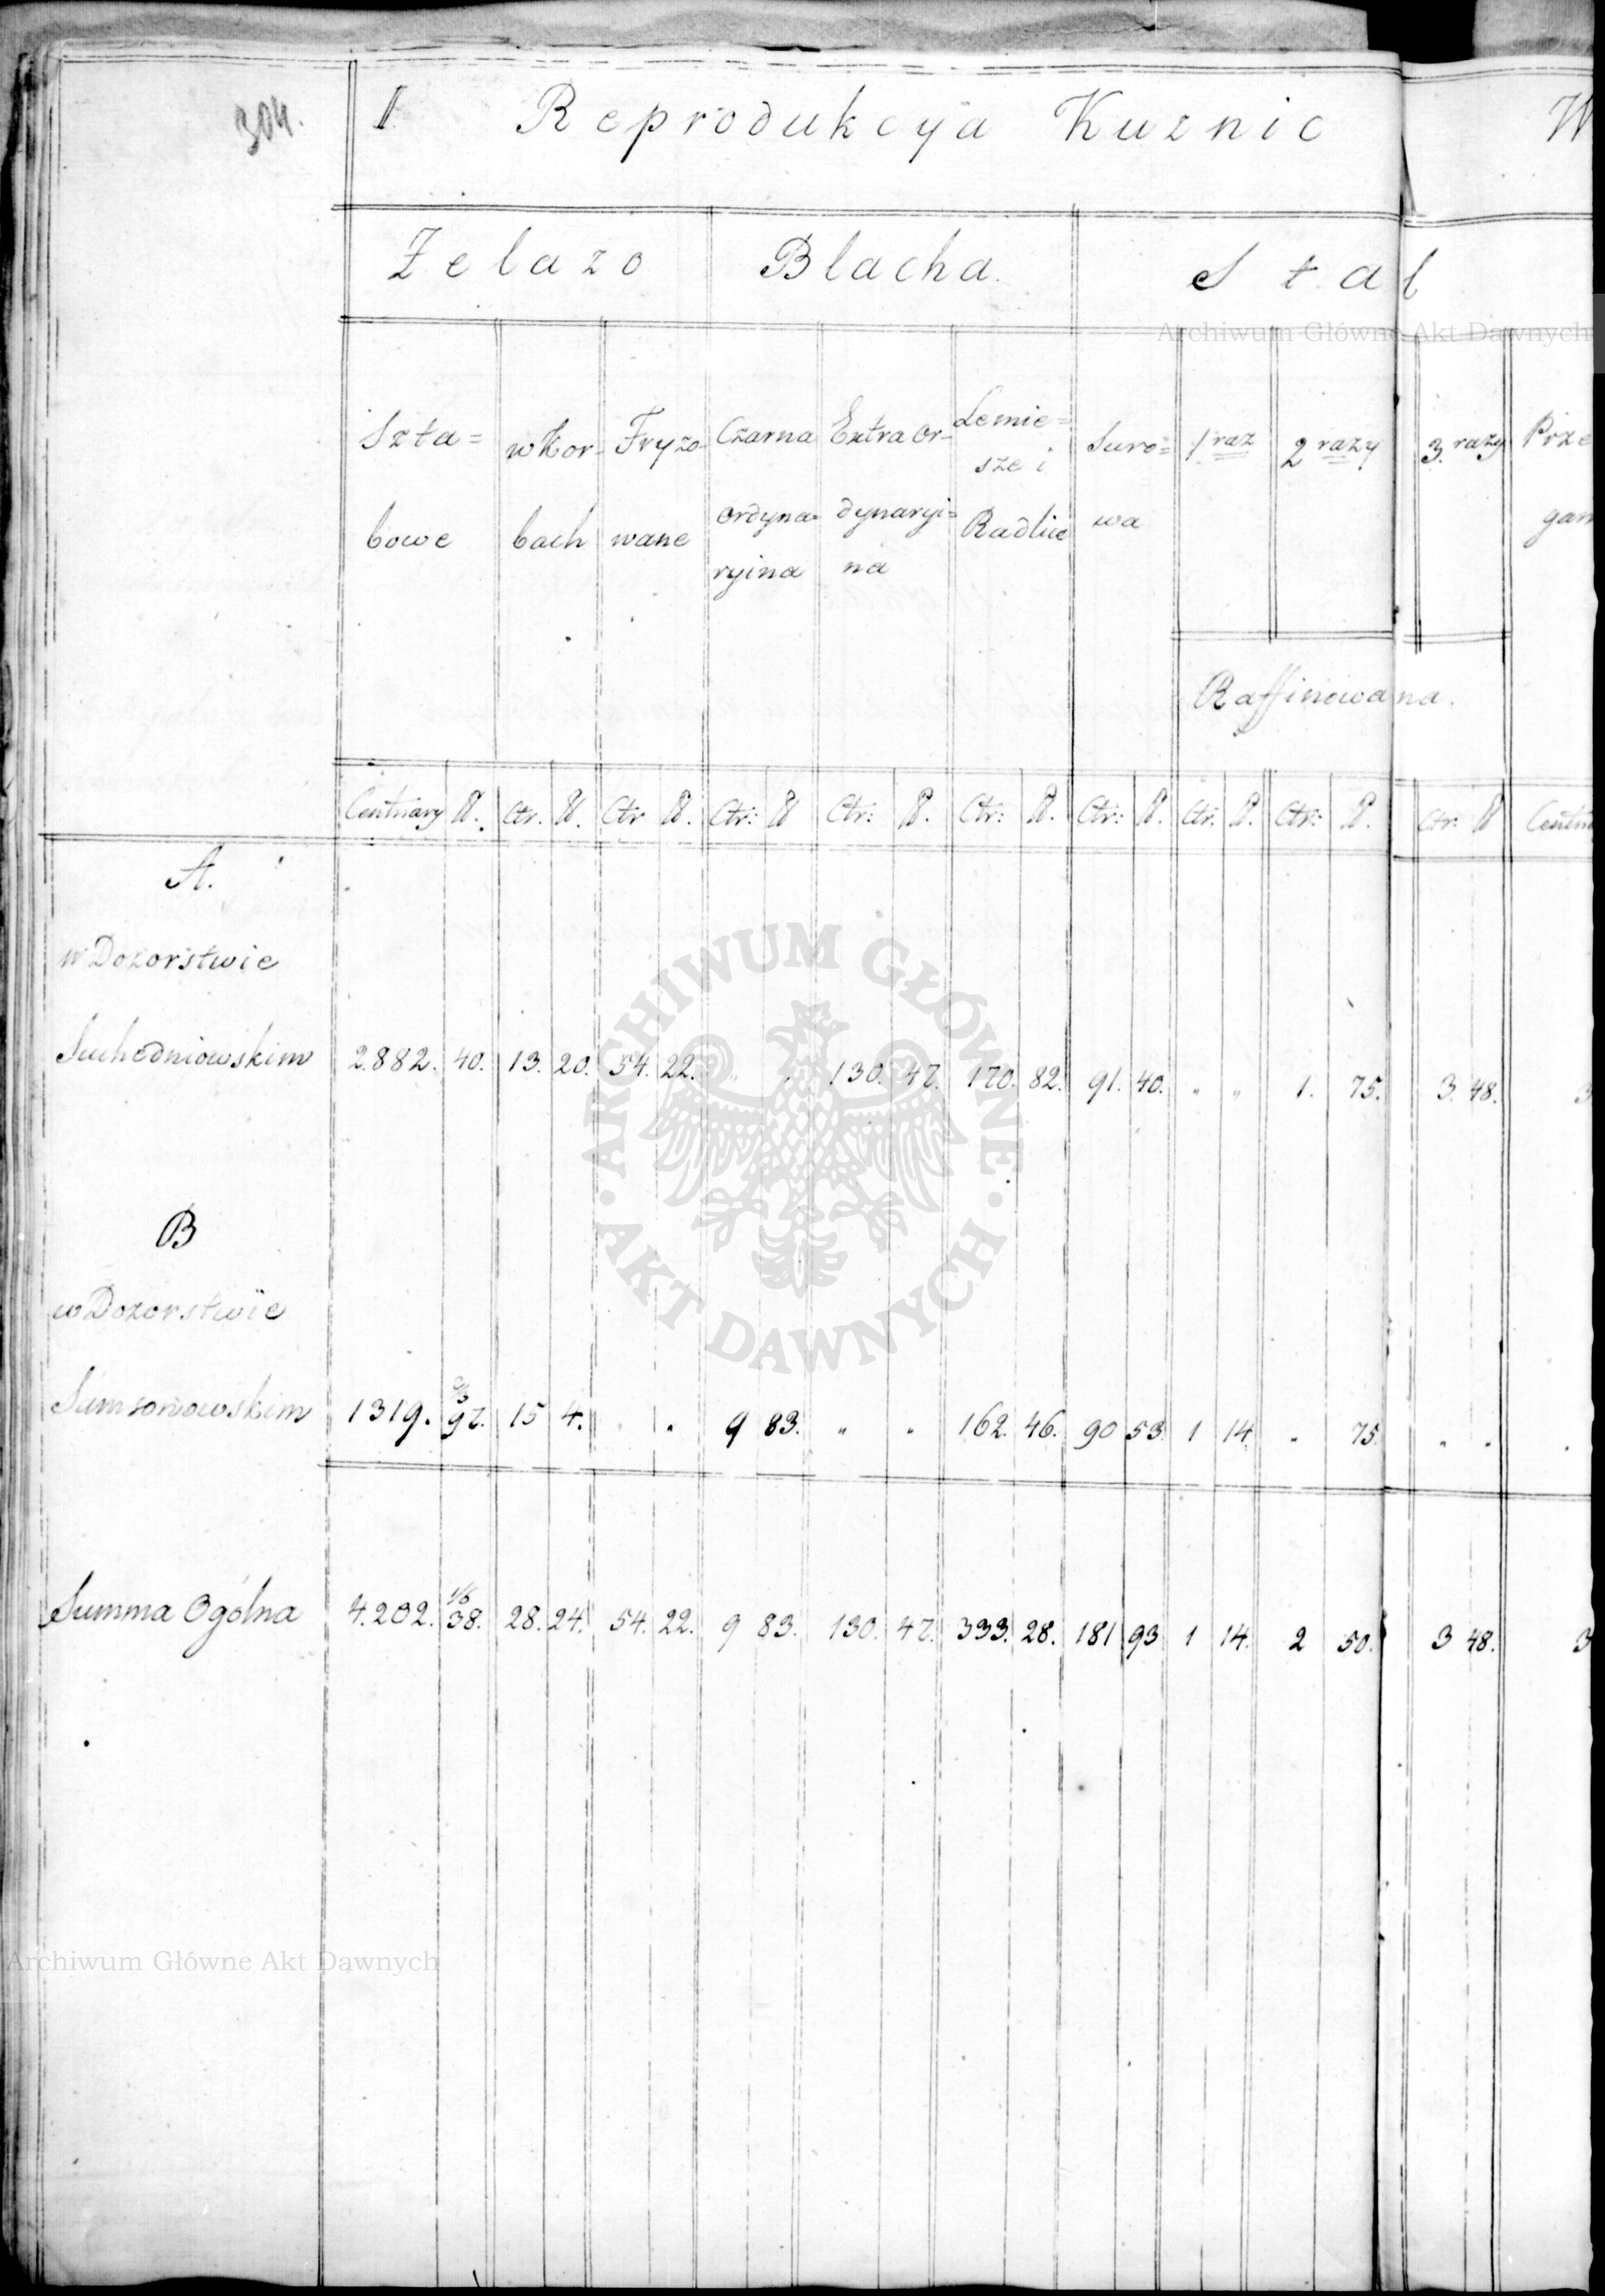 304.
I Reprodukcyia Kuznic W
Zelazo Blacha. Stal
Archiwum Główne Akt Dawnych
Szta= wKor- Fryzo- Czarna Extraor- Lemie= Suro= 1 raz 2 razy 3. razy Prze
sze i
bowe bach wane ordyna= dynaryi= Radlice wa gan
ryina na
Raffinowana.
Centnary ℔. Ctr. ℔. Ctr ℔. Ctr: ℔ Ctr: ℔. Ctr: ℔. Ctr: ℔. Ctr. ℔. Ctr: ℔. Ctr: ℔ Centn
A.
w Dozorstwie
Suchedniowskim 2.882. 40. 13. 20. 54. 22. „ „ 130. 47. 170. 82. 91. 40. „ „ 1. 75. 3. 48. 3
B
w Dozorstwie
Samsonowskim 1319. 97. 15 4. „ „ 9 83. „ „ 162. 46. 90 53 1 14. „ 75. „ „
Summa Ogólna 4.202. 38. 1/6 28. 24. 54. 22. 9 83. 130. 47. 333. 28. 181 93 1 14. 2 50. 3 48. 3
ARCHIWUM GŁÓWNE
AKT DAWNYCH
Archiwum Główne Akt Dawnych